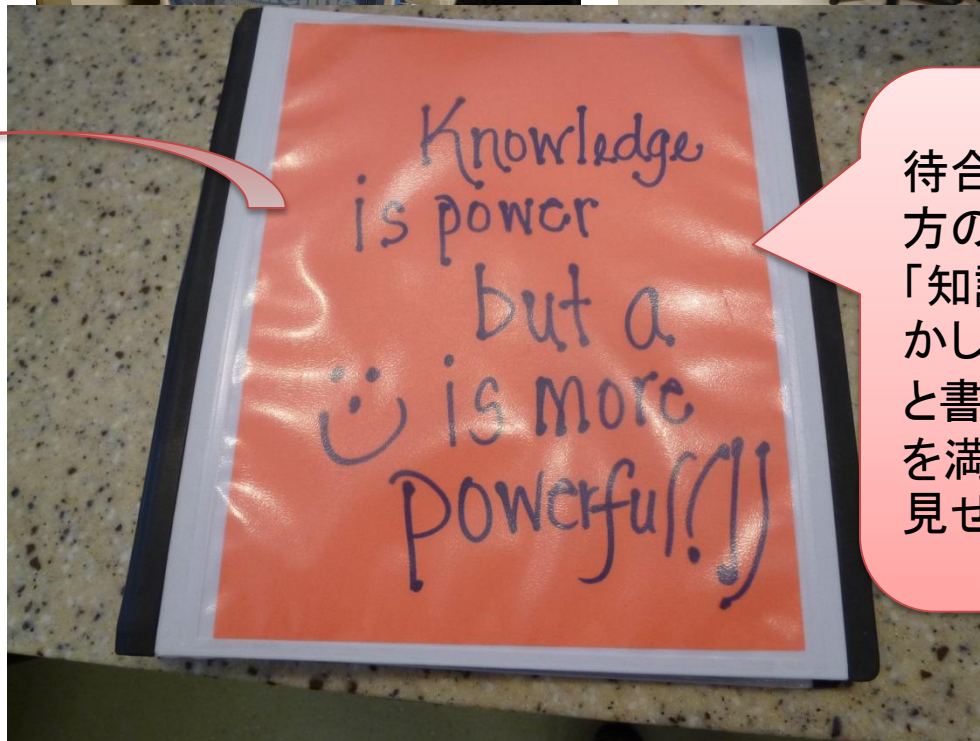 Knowledge
is power
but a
is more
powerful(!))
待合
方の
「知識
かし
と書
を満
見せ